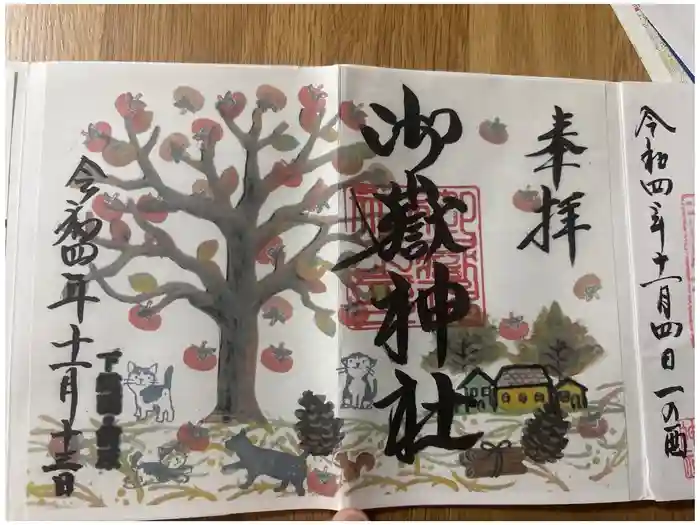 令和四年十一月四日 一の酉
奉拝
御嶽神社
令和四年十一月十三日